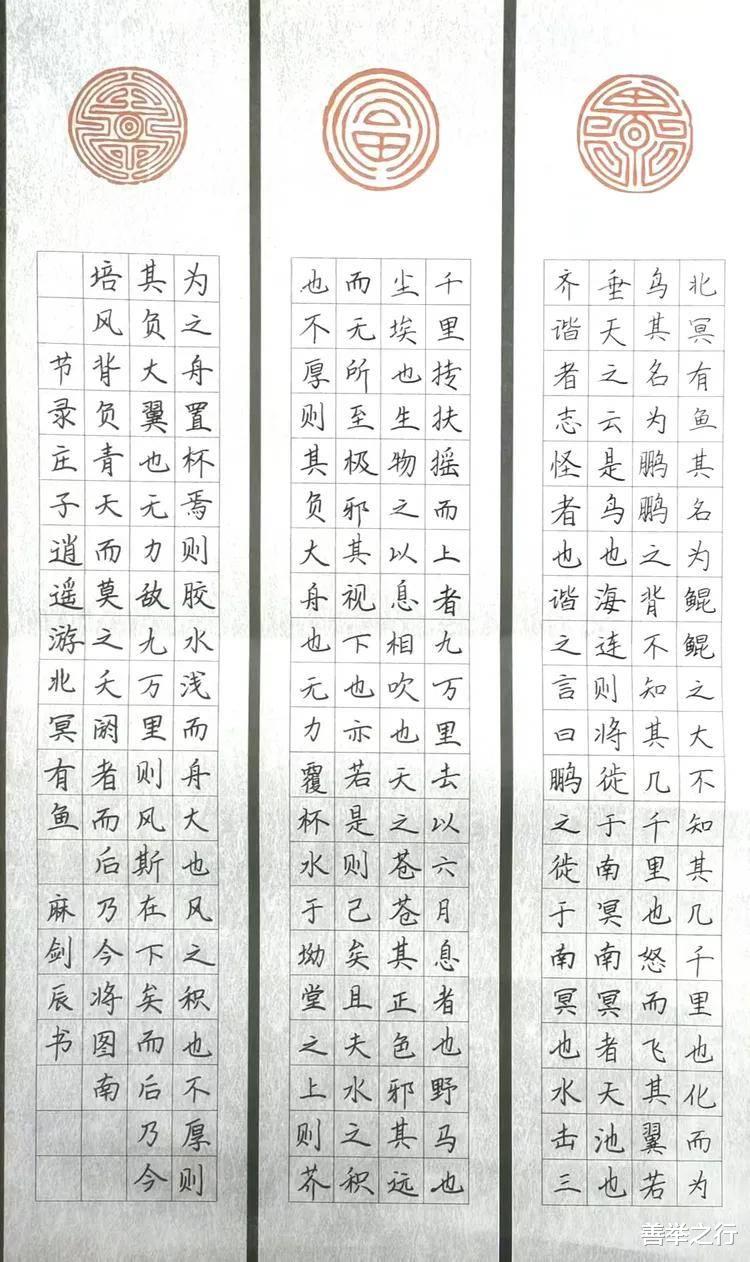 北冥有鱼其名为鲲鲲之大不知其几千里也化而为
鸟其名为鹏鹏之背不知其几千里也怒而飞其翼若
垂天之云是鸟也海连则将徙于南冥南冥者天池也
齐谐者志怪者也谐之言曰鹏之徙于南冥也水击三
千里抟扶摇而上者九万里去以六月息者也野马也
尘埃也生物之以息相吹也天之苍苍其正色邪其远
而无所至极邪其视下也亦若是则己矣且夫水之积
也不厚则其负大舟也无力覆杯水于坳堂之上则芥
为之舟置杯焉则胶水浅而舟大也风之积也不厚则
其负大翼也无力敌九万里则风斯在下矣而后乃今
培风背负青天而莫之夭阏者而后乃今将图南
节录庄子逍遥游北冥有鱼 麻剑辰书
善举之行